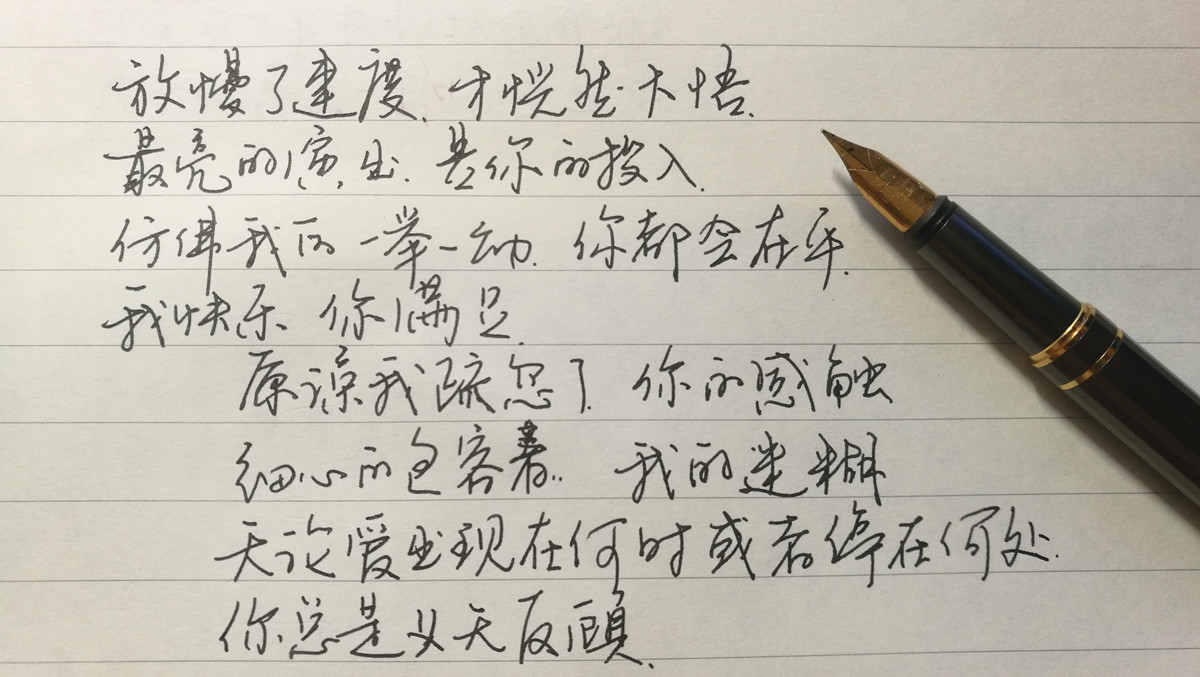 放慢了速度. 才恍然大悟.
最亮的演出. 是你的投入.
仿佛我的一举一动. 你都会在乎.
我快乐. 你满足.
原谅我疏忽了. 你的感触
细心的包容着.. 我的迷糊
无论爱出现在何时或者停在何处.
你总是义无反顾.